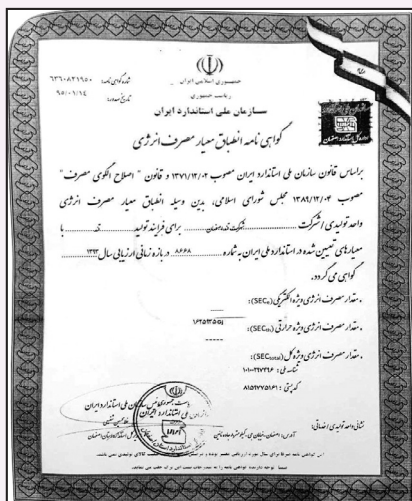 جمهوری اسلامی ایران
ریاست جمهوری
سازمان ملی استاندارد ایران
شماره گواهی نامه: ۶۳۶۰۸۳۱۹۵۰
تاریخ صدور: ۹۵/۰۱/۱۴
اداره کل استاندارد اصفهان
گواهی نامه انطباق معیار مصرف انرژی
براساس قانون سازمان ملی استاندارد ایران مصوب ۱۳۷۱/۱۲/۰۲ و قانون " اصلاح الگوی مصرف"
مصوب ۱۳۸۹/۱۲/۰۴ مجلس شورای اسلامی، بدین وسیله انطباق معیار مصرف انرژی
واحد تولیدی / شرکت شرکت قند اصفهان برای فرایند تولید قند با
معیارهای تعیین شده در استاندارد ملی ایران به شماره ۸۶۶۸ در بازه زمانی ارزیابی سال ۱۳۹۳
گواهی می گردد.
. مقدار مصرف انرژی ویژه الکتریکی (SECe):
. مقدار مصرف انرژی ویژه حرارتی (SECth):
-----
. مقدار مصرف انرژی ویژه کل (SECtotal):
شناسه ملی:
کد پستی: ۸۱۵۹۷۷۵۱۶۱
نشانی واحد تولیدی / خدماتی: آدرس: اصفهان،
سازمان ملی استاندارد ایران